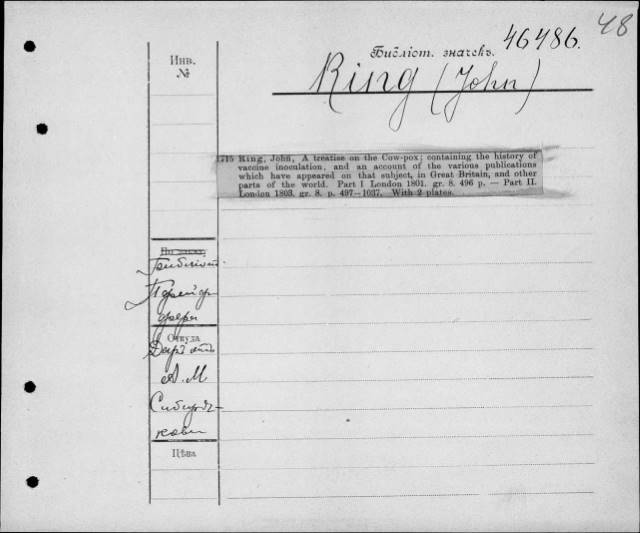 48
46486.
Библіот. значекъ.
Ring (John)
Инв.
№
1715 Ring, John, A treatise on the Cow-pox; containing the history of
vaccine inoculation, and an account of the various publications
which have appeared on that subject, in Great Britain, and other
parts of the world. Part I London 1801. gr. 8. 496 p. — Part II.
London 1803. gr. 8. p. 497—1037. With 2 plates.
Откуда
Даръ отъ
А. М
Сибиря-
кова
Цѣна